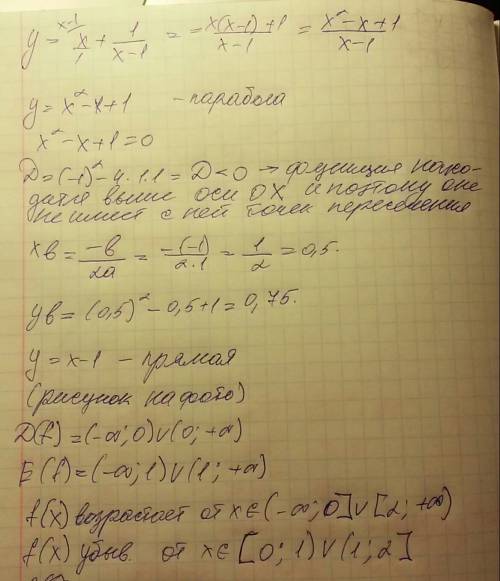 y = x^{x-1}/1 + 1/(x-1) = = (x(x-1)+1)/(x-1) = (x²-x+1)/(x-1)
y = x²-x+1 - парабола
x²-x+1=0
D=(-1)²-4·1·1 = D<0 → функция нахо-
дится выше оси OX и поэтому она
не имеет с ней точек пересечения
xв = -в/2a = -(-1)/2·1 = 1/2 = 0,5.
yв = (0,5)²-0,5+1=0,75.
y = x-1 - прямая
(рисунок на фото)
D(f)=(-∞;0)∨(0;+∞)
E(f)=(-∞;1)∨(1;+∞)
f(x) возрастает от x∈(-∞;0]∨[2;+∞)
f(x) убыв. от x∈[0;1)∨(1;2]